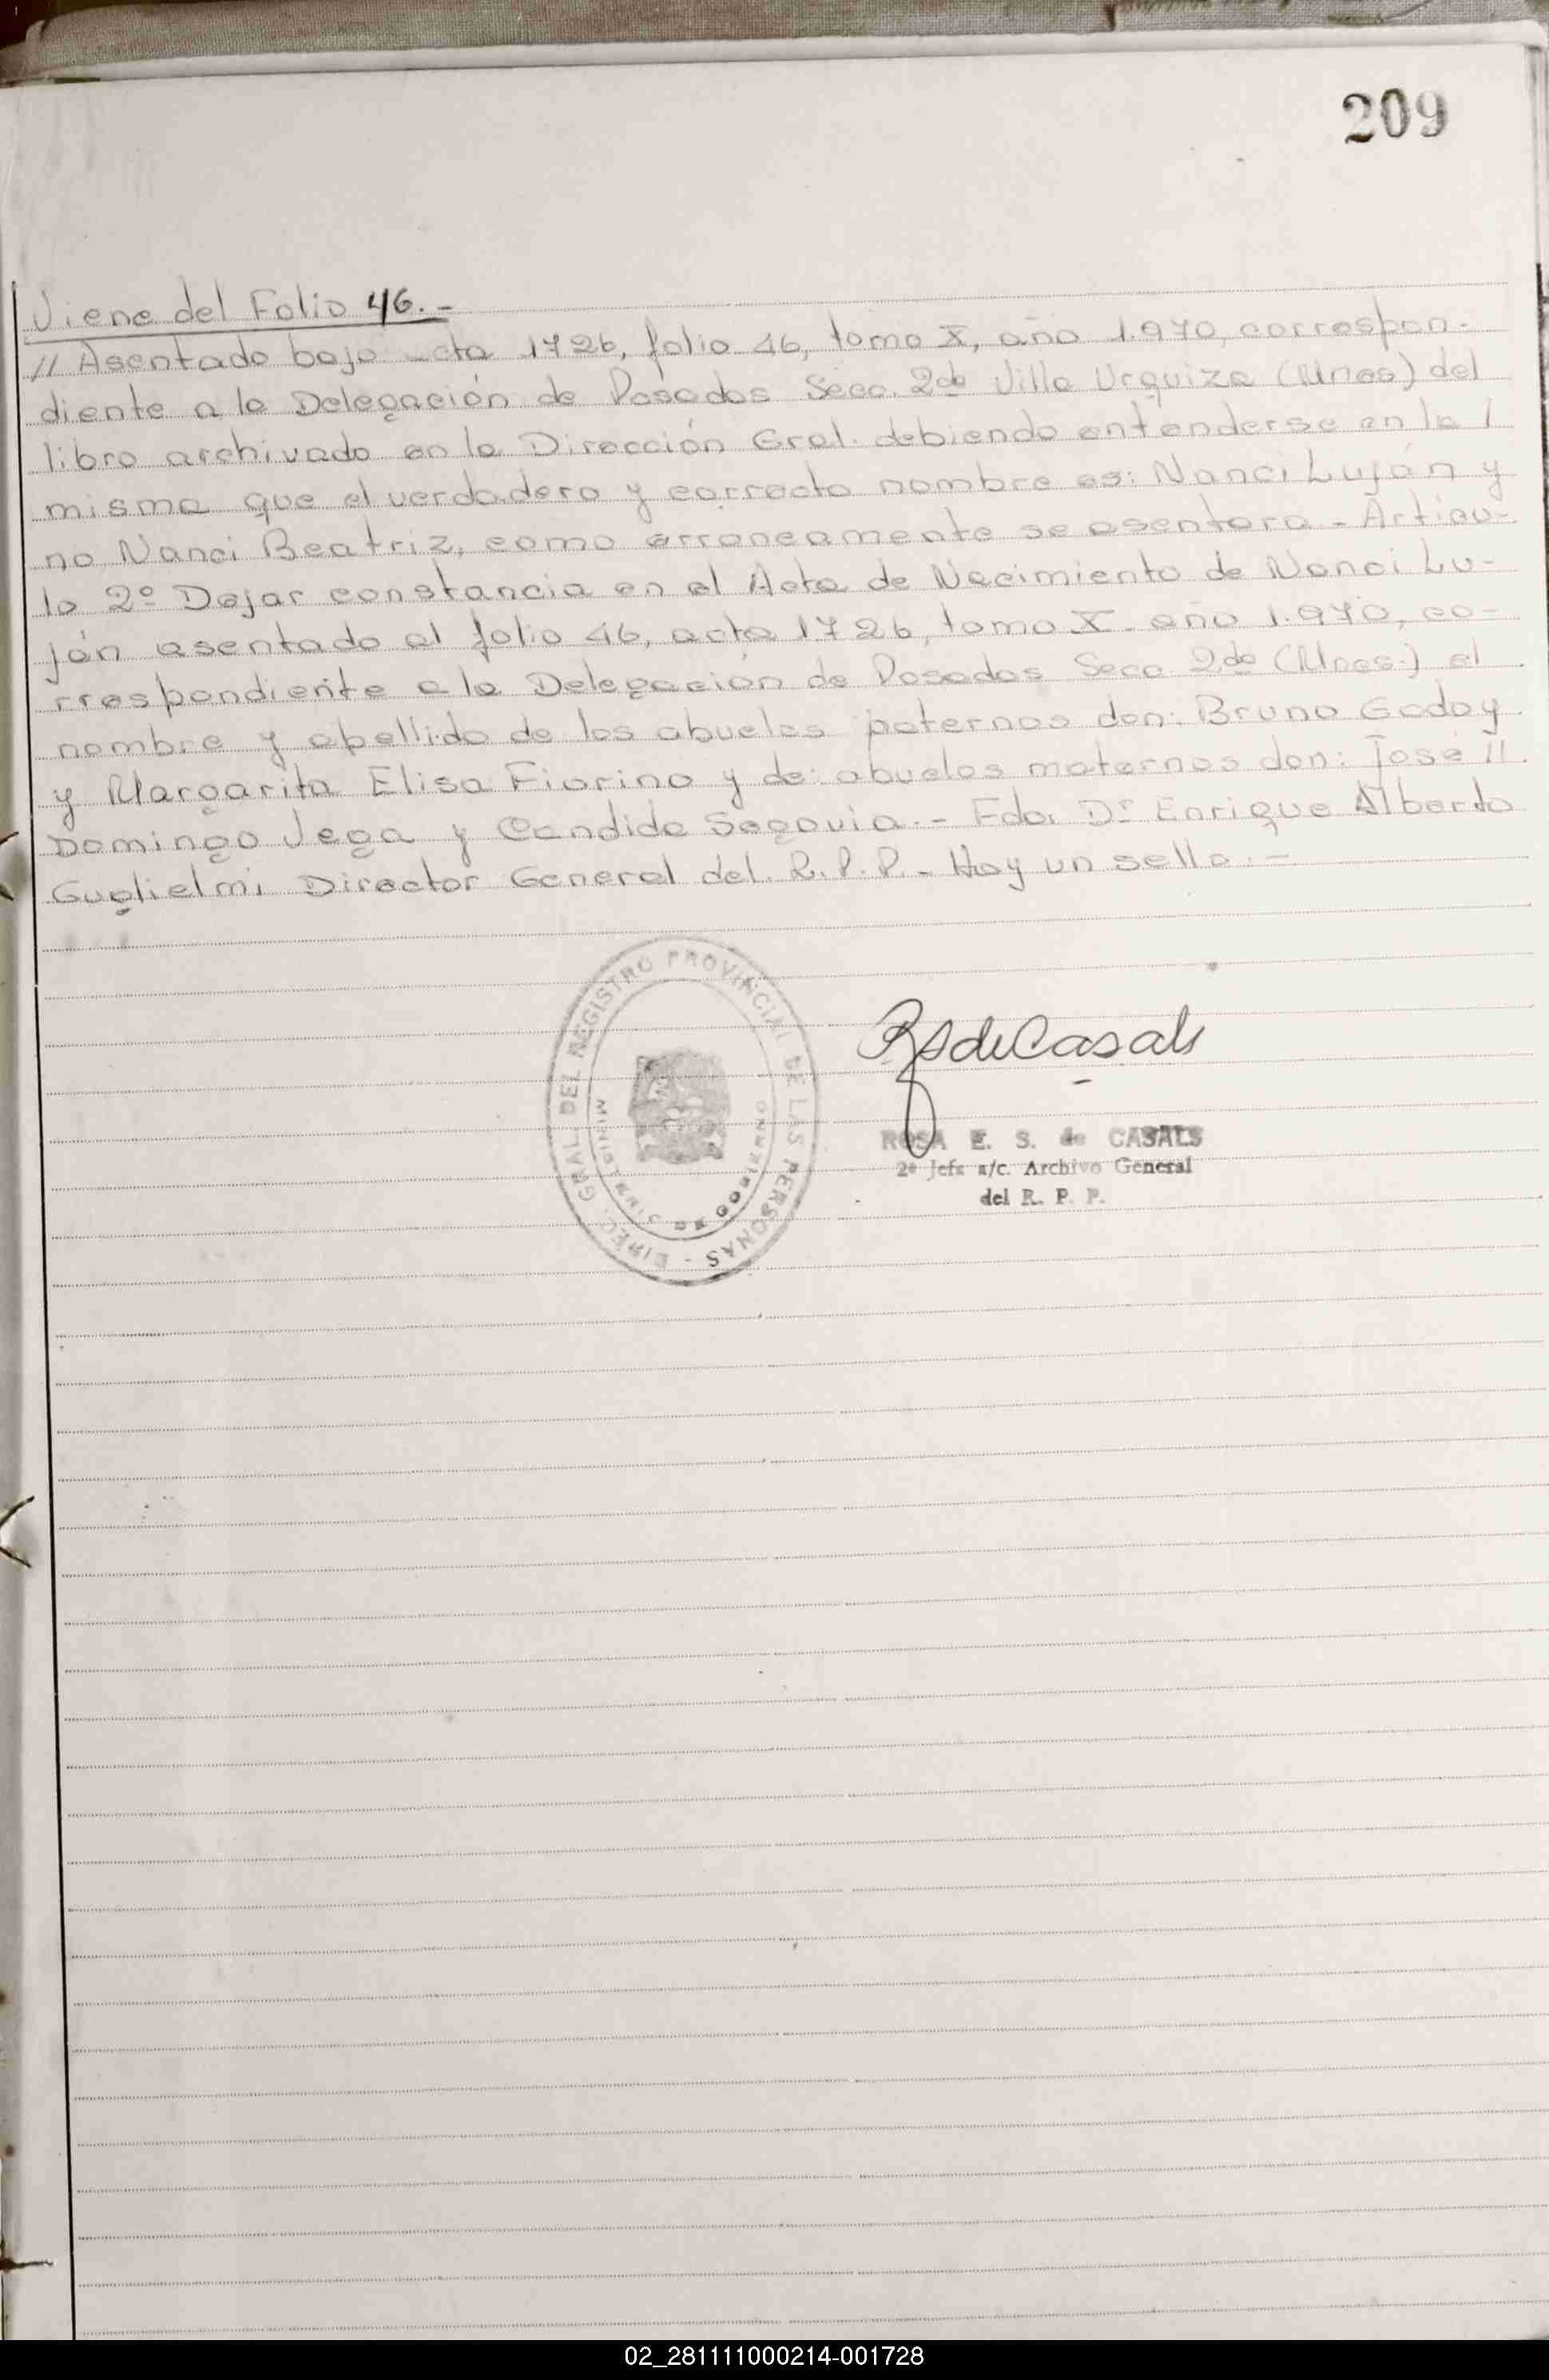 209
Viene del Folio 46.-
// Asentado bajo acta 1726, folio 46, tomo X, año 1.970, correspon-
diente a la Delegación de Posadas Secc. 2da Villa Urquiza (Mnes) del
libro archivado en la Dirección Gral. debiendo entenderse en la /
misma que el verdadero y correcto nombre es: Nanci Luján y
no Nanci Beatriz, como erroneamente se asentara - Artícu-
lo 2º Dejar constancia en el Acta de Nacimiento de Nanci Lu-
ján asentado al folio 46, acta 1726, tomo X - año 1.970, co-
rrespondiente a la Delegación de Posadas Secc 2da (Mnes.) el
nombre y apellido de los abuelos paternos don: Bruno Godoy
y Margarita Elisa Fiorino y de: abuelos maternos don: José //
Domingo Vega y Candida Segovia.- Fdo. Dr Enrique Alberto
Guglielmi Director General del R.P.P. - Hay un sello.-
DIREC. GRAL. DEL REGISTRO PROVINCIAL DE LAS PERSONAS -
MINISTERIO DE GOBIERNO
RS de Casals
ROSA E. S. de CASALS
2º Jefe a/c. Archivo General
del R. P. P.
02_281111000214-001728